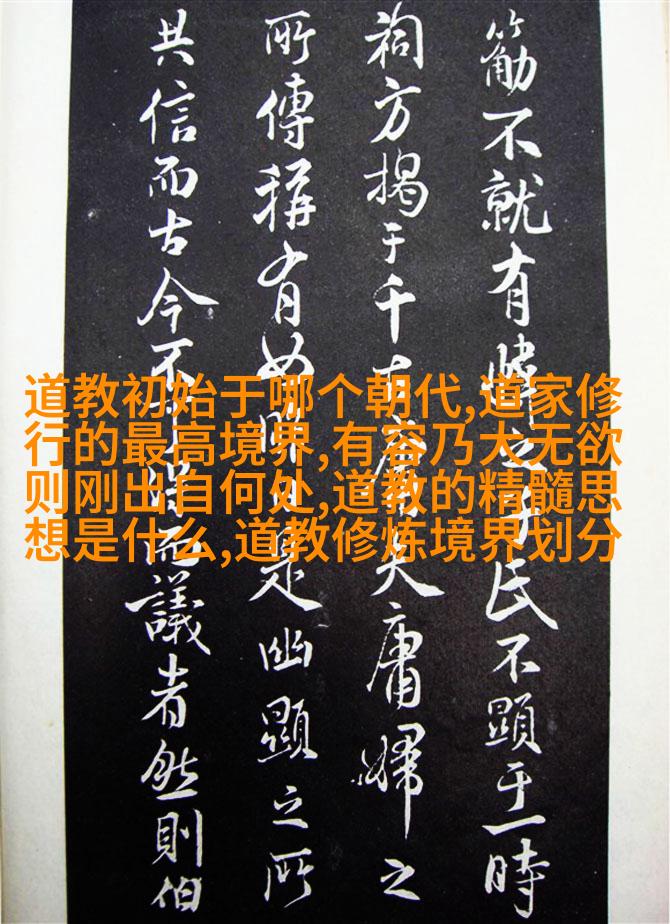 道教初始于哪个朝代,道家修
行的最高境界,有容乃大无欲
则刚出自何处,道教的精髓思
想是什么,道教修炼境界划分
不就有氏不顯于一時
祠方揭于千夫庸婦之
所傳稱有是幽顯之所
共信而古今不而議者然則伯